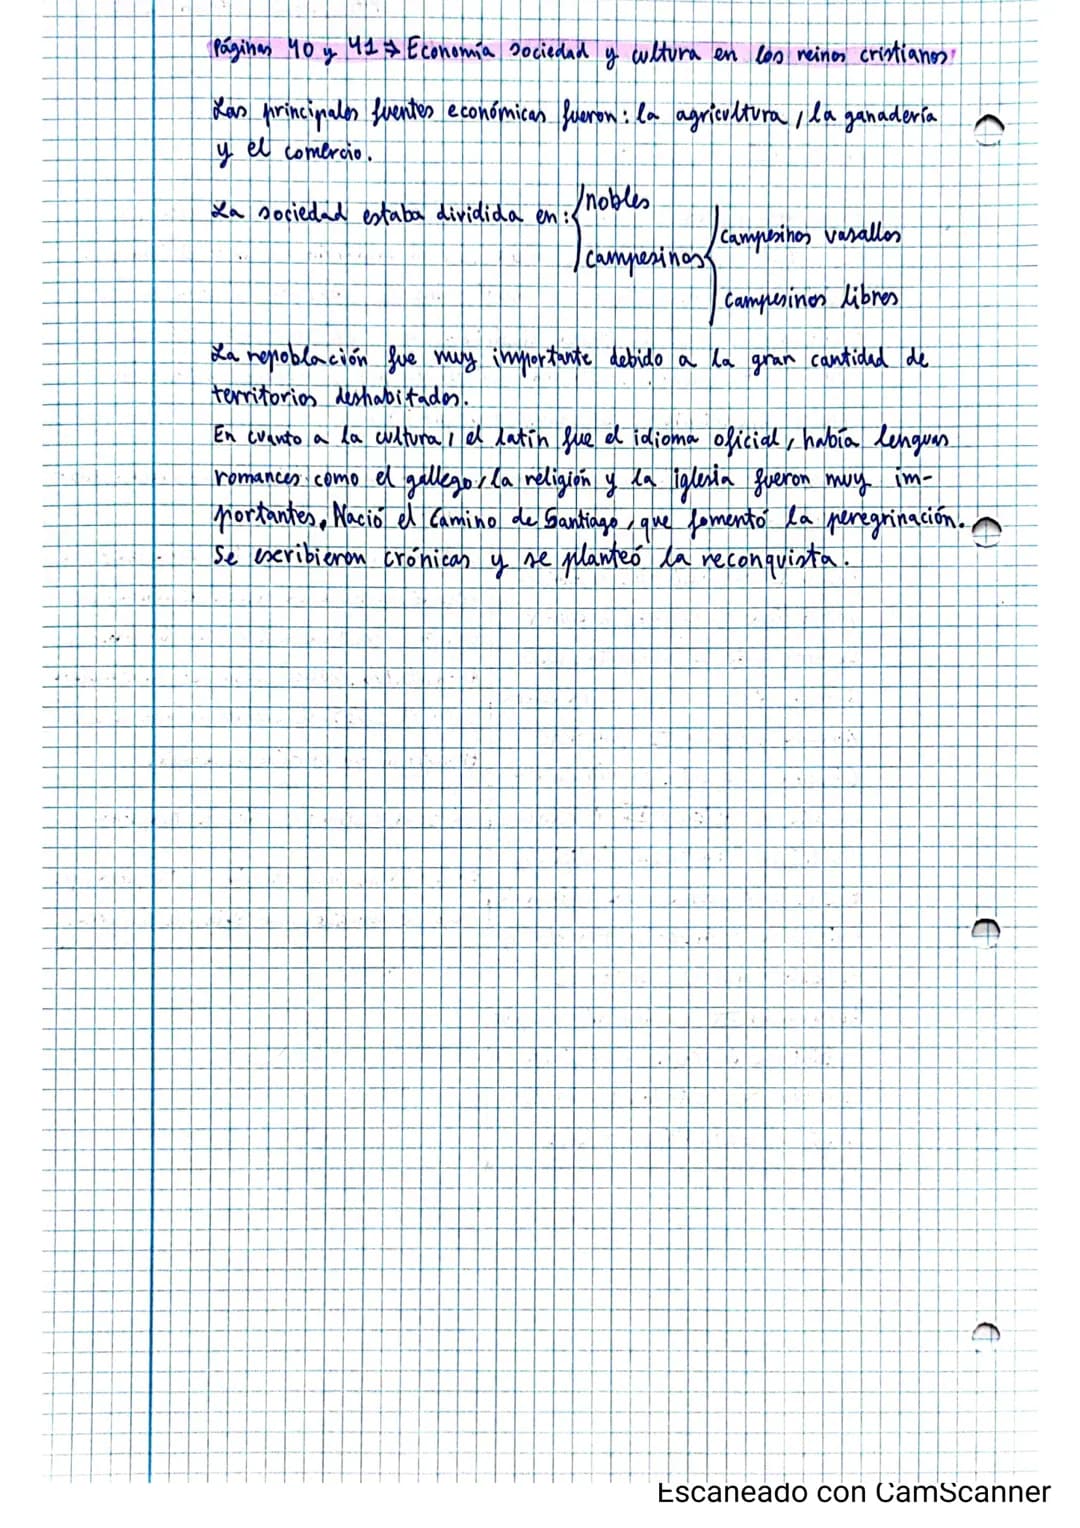 Páginas 40 y 41 → Economía sociedad y cultura en los reinos cristianos:
Las principales fuentes económicas fueron: la agricultura, la ganadería
y el comercio.
La sociedad estaba dividida en: { nobles
campesinos { campesinos vasallos
campesinos libres
La repoblación fue muy importante debido a la gran cantidad de
territorios deshabitados.
En cuanto a la cultura, el latín fue el idioma oficial, había lenguas
romances como el gallego, la religión y la iglesia fueron muy im-
portantes. Nació el Camino de Santiago, que fomentó la peregrinación.
Se escribieron crónicas y se planteó la reconquista.
Escaneado con CamScanner